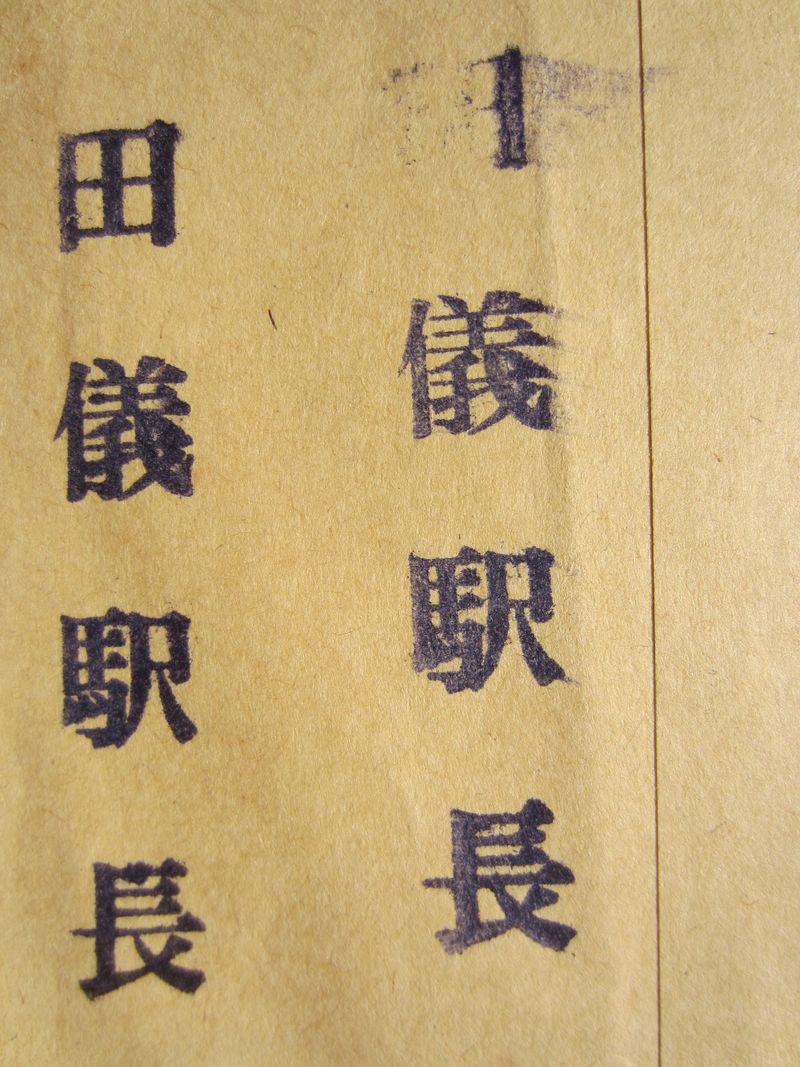 儀駅長
田儀駅長